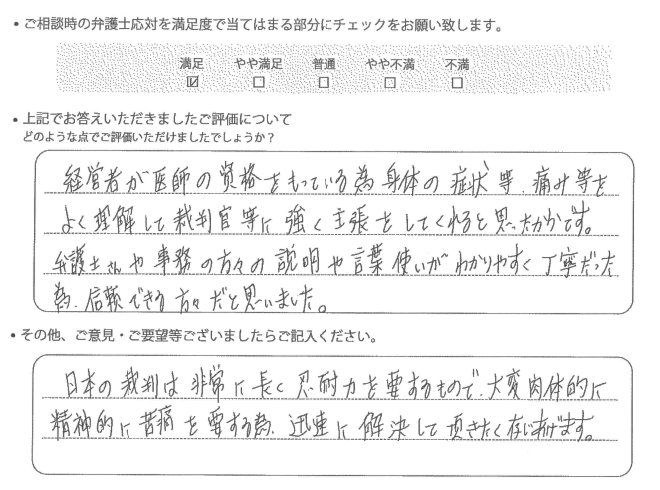 • ご相談時の弁護士応対を満足度で当てはまる部分にチェックをお願い致します。
満足 やや満足 普通 やや不満 不満
☑ □ □ □ □
• 上記でお答えいただきましたご評価について
どのような点でご評価いただけましたでしょうか？
経営者が医師の資格をもっている為身体の症状等、痛み等を
よく理解して裁判官等に強く主張をしてくれると思ったからです。
弁護士さんや事務の方々の説明や言葉使いがわかりやすく丁寧だった
為、信頼できる方々だと思いました。
• その他、ご意見・ご要望等ございましたらご記入ください。
日本の裁判は非常に長く忍耐力を要するもので、大変肉体的に
精神的に苦痛を要する為、迅速に解決して頂きたく存じあげます。